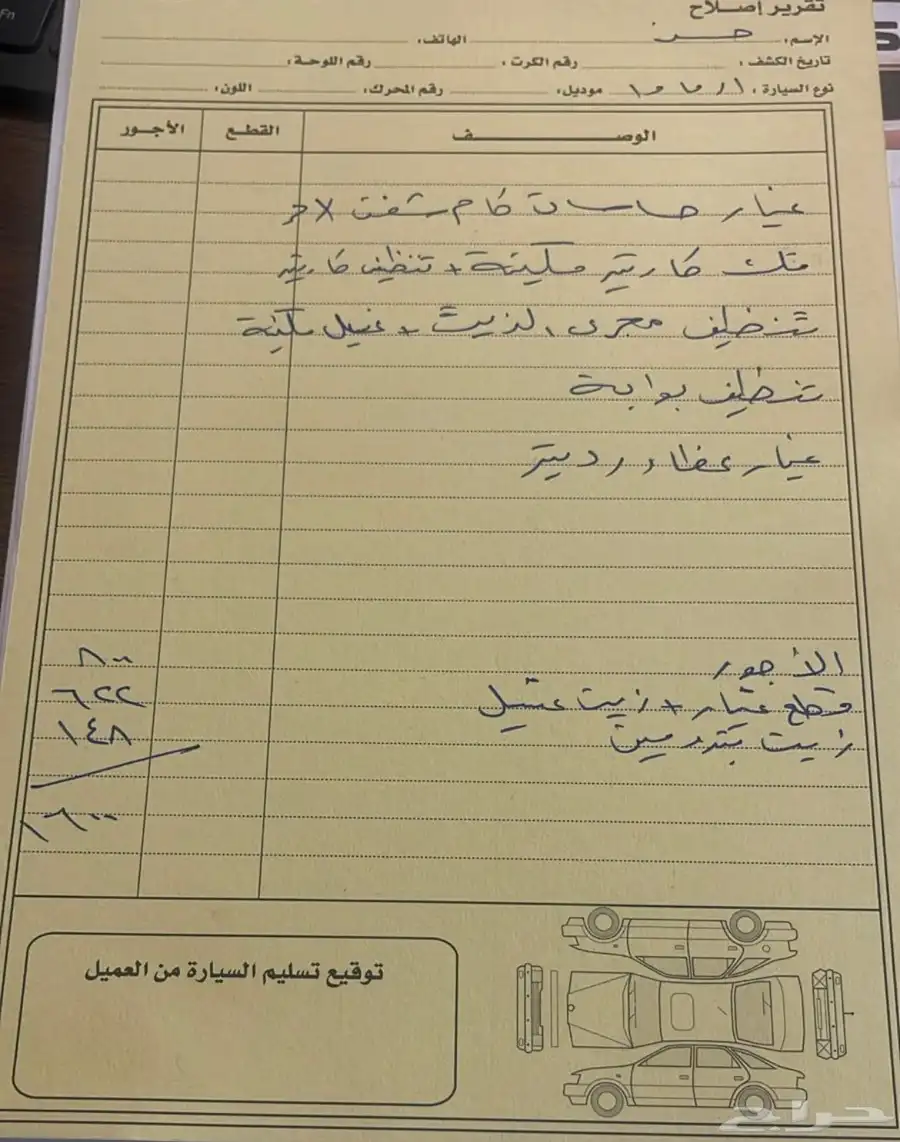 تقرير إصلاح
الإسم: حسن الهاتف:
تاريخ الكشف: رقم الكرت: رقم اللوحة:
نوع السيارة: موديل: رقم المحرك: اللون:
الوصــف القطـع الأجـور
غيار حساسات كام شفت
فك كارتير مكينة + تنظيف كارتير
تنظيف مجرى الزيت + غسيل مكينة
تنظيف بوابة
غيار غطاء رديتر
الأجور ٨٠٠
قطع غيار + زيت غسيل ٦٢٢
زيت بترومين ١٤٨
١٦٠٠
توقيع تسليم السيارة من العميل
حراج